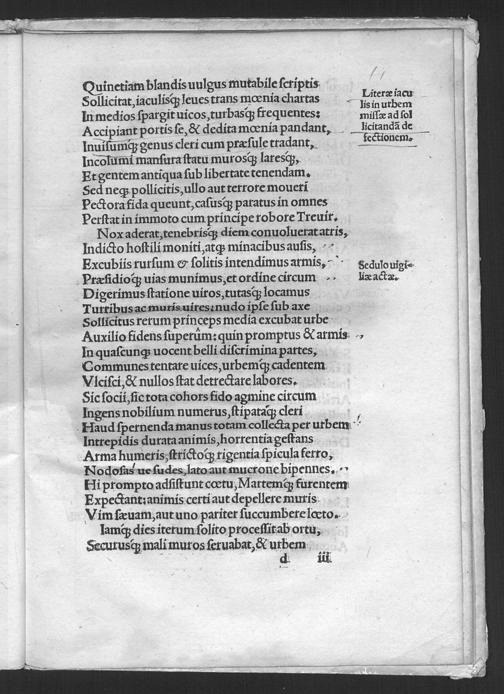 Quinetiam blandis uulgus mutabile scriptis
Sollicitat, iaculisq; leues trans mœnia chartas
In medios spargit uicos, turbasq; frequentes:
Accipiant portis se, & dedita mœnia pandant,
Inuisumq; genus cleri cum præsule tradant,
Incolumi mansura statu murosq; laresq;,
Et gentem antiqua sub libertate tenendam.
Sed neq; pollicitis, ullo aut terrore moueri
Pectora fida queunt, casusq; paratus in omnes
Perstat in immoto cum principe robore Treuir.
Nox aderat, tenebrisq; diem conuoluerat atris,
Indicto hostili moniti, atq; minacibus ausis,
Excubiis rursum & solitis intendimus armis,
Præsidioq; uias munimus, et ordine circum
Digerimus statione uiros, tutasq; locamus
Turribus ac muris uires: nudo ipse sub axe
Sollicitus rerum princeps media excubat urbe
Auxilio fidens superûm: quin promptus & armis
In quascunq; uocent belli discrimina partes,
Communes tentare uices, urbemq; cadentem
Vlcisci, & nullos stat detrectare labores.
Sic socii, sic tota cohors fido agmine circum
Ingens nobilium numerus, stipataq; cleri
Haud spernenda manus totam collecta per urbem
Intrepidis durata animis, horrentia gestans
Arma humeris, strictoq; rigentia spicula ferro,
Nodosas ue sudes, lato aut mucrone bipennes.
Hi prompto adsistunt cœtu, Martemq; furentem
Expectant: animis certi aut depellere muris
Vim sæuam, aut uno pariter succumbere lœto.
Iamq; dies iterum solito processit ab ortu,
Securusq; mali muros seruabat, & urbem
d iii
Literæ iacu
lis in urbem
missæ ad sol
licitandã de
fectionem.
Sedulo uigi-
liæ actæ.